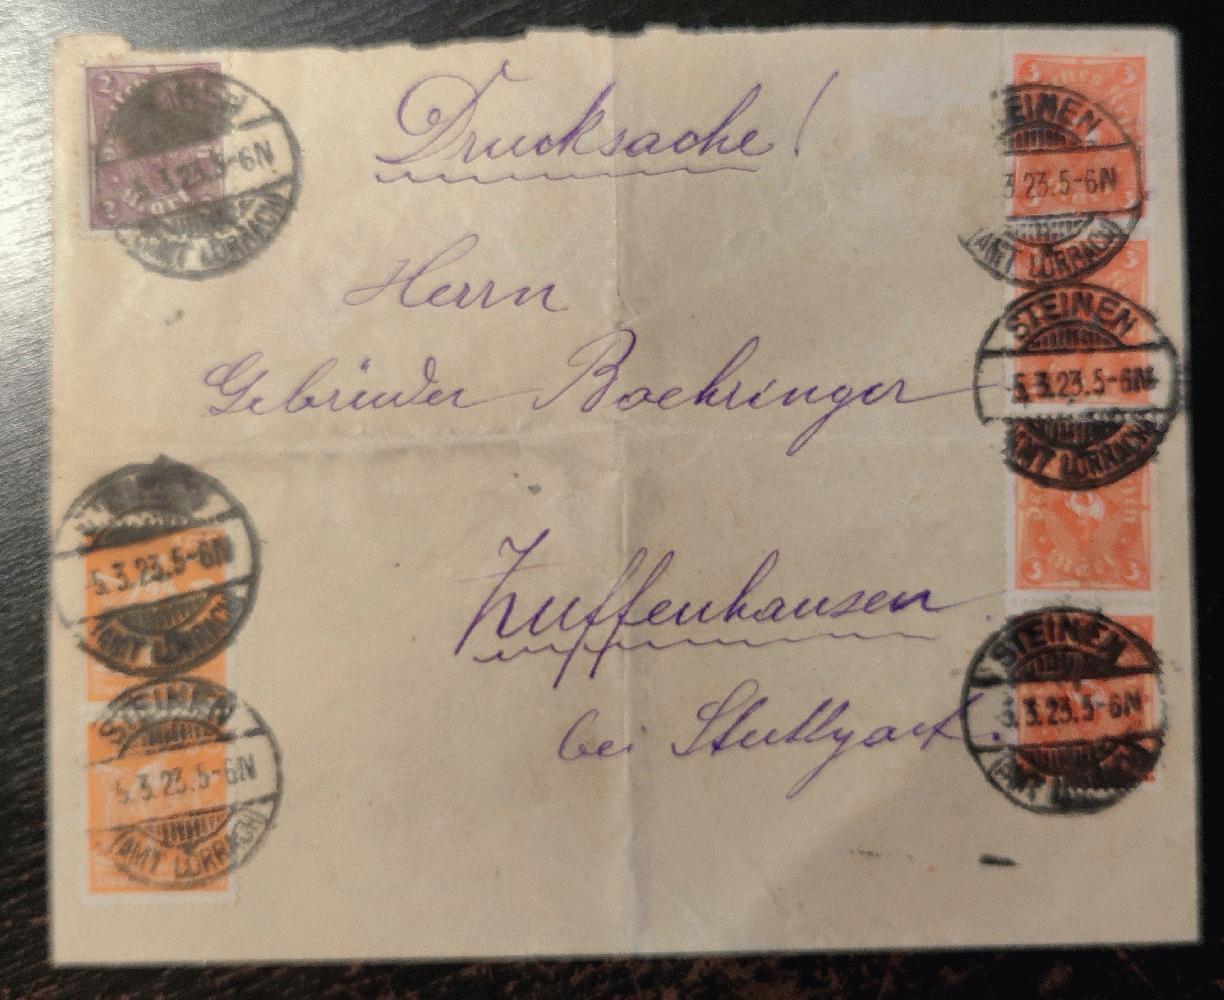 Drucksache!
Herrn
Gebrüder Boehringer
Zuffenhausen
bei Stuttgart.
2
2
5.3.23.5-6N
AMT LÖRRACH
3 3
STEINEN
3.23.5-6N
(AMT LÖRRACH)
3
STEINEN
5.3.23.5-6N
AMT LÖRRACH
3 3
STEINEN
5.3.23.5-6N
(AMT
5.3.23.5-6N
(AMT LÖRRACH)
STEINEN
5.3.23.5-6N
(AMT LÖRRACH)